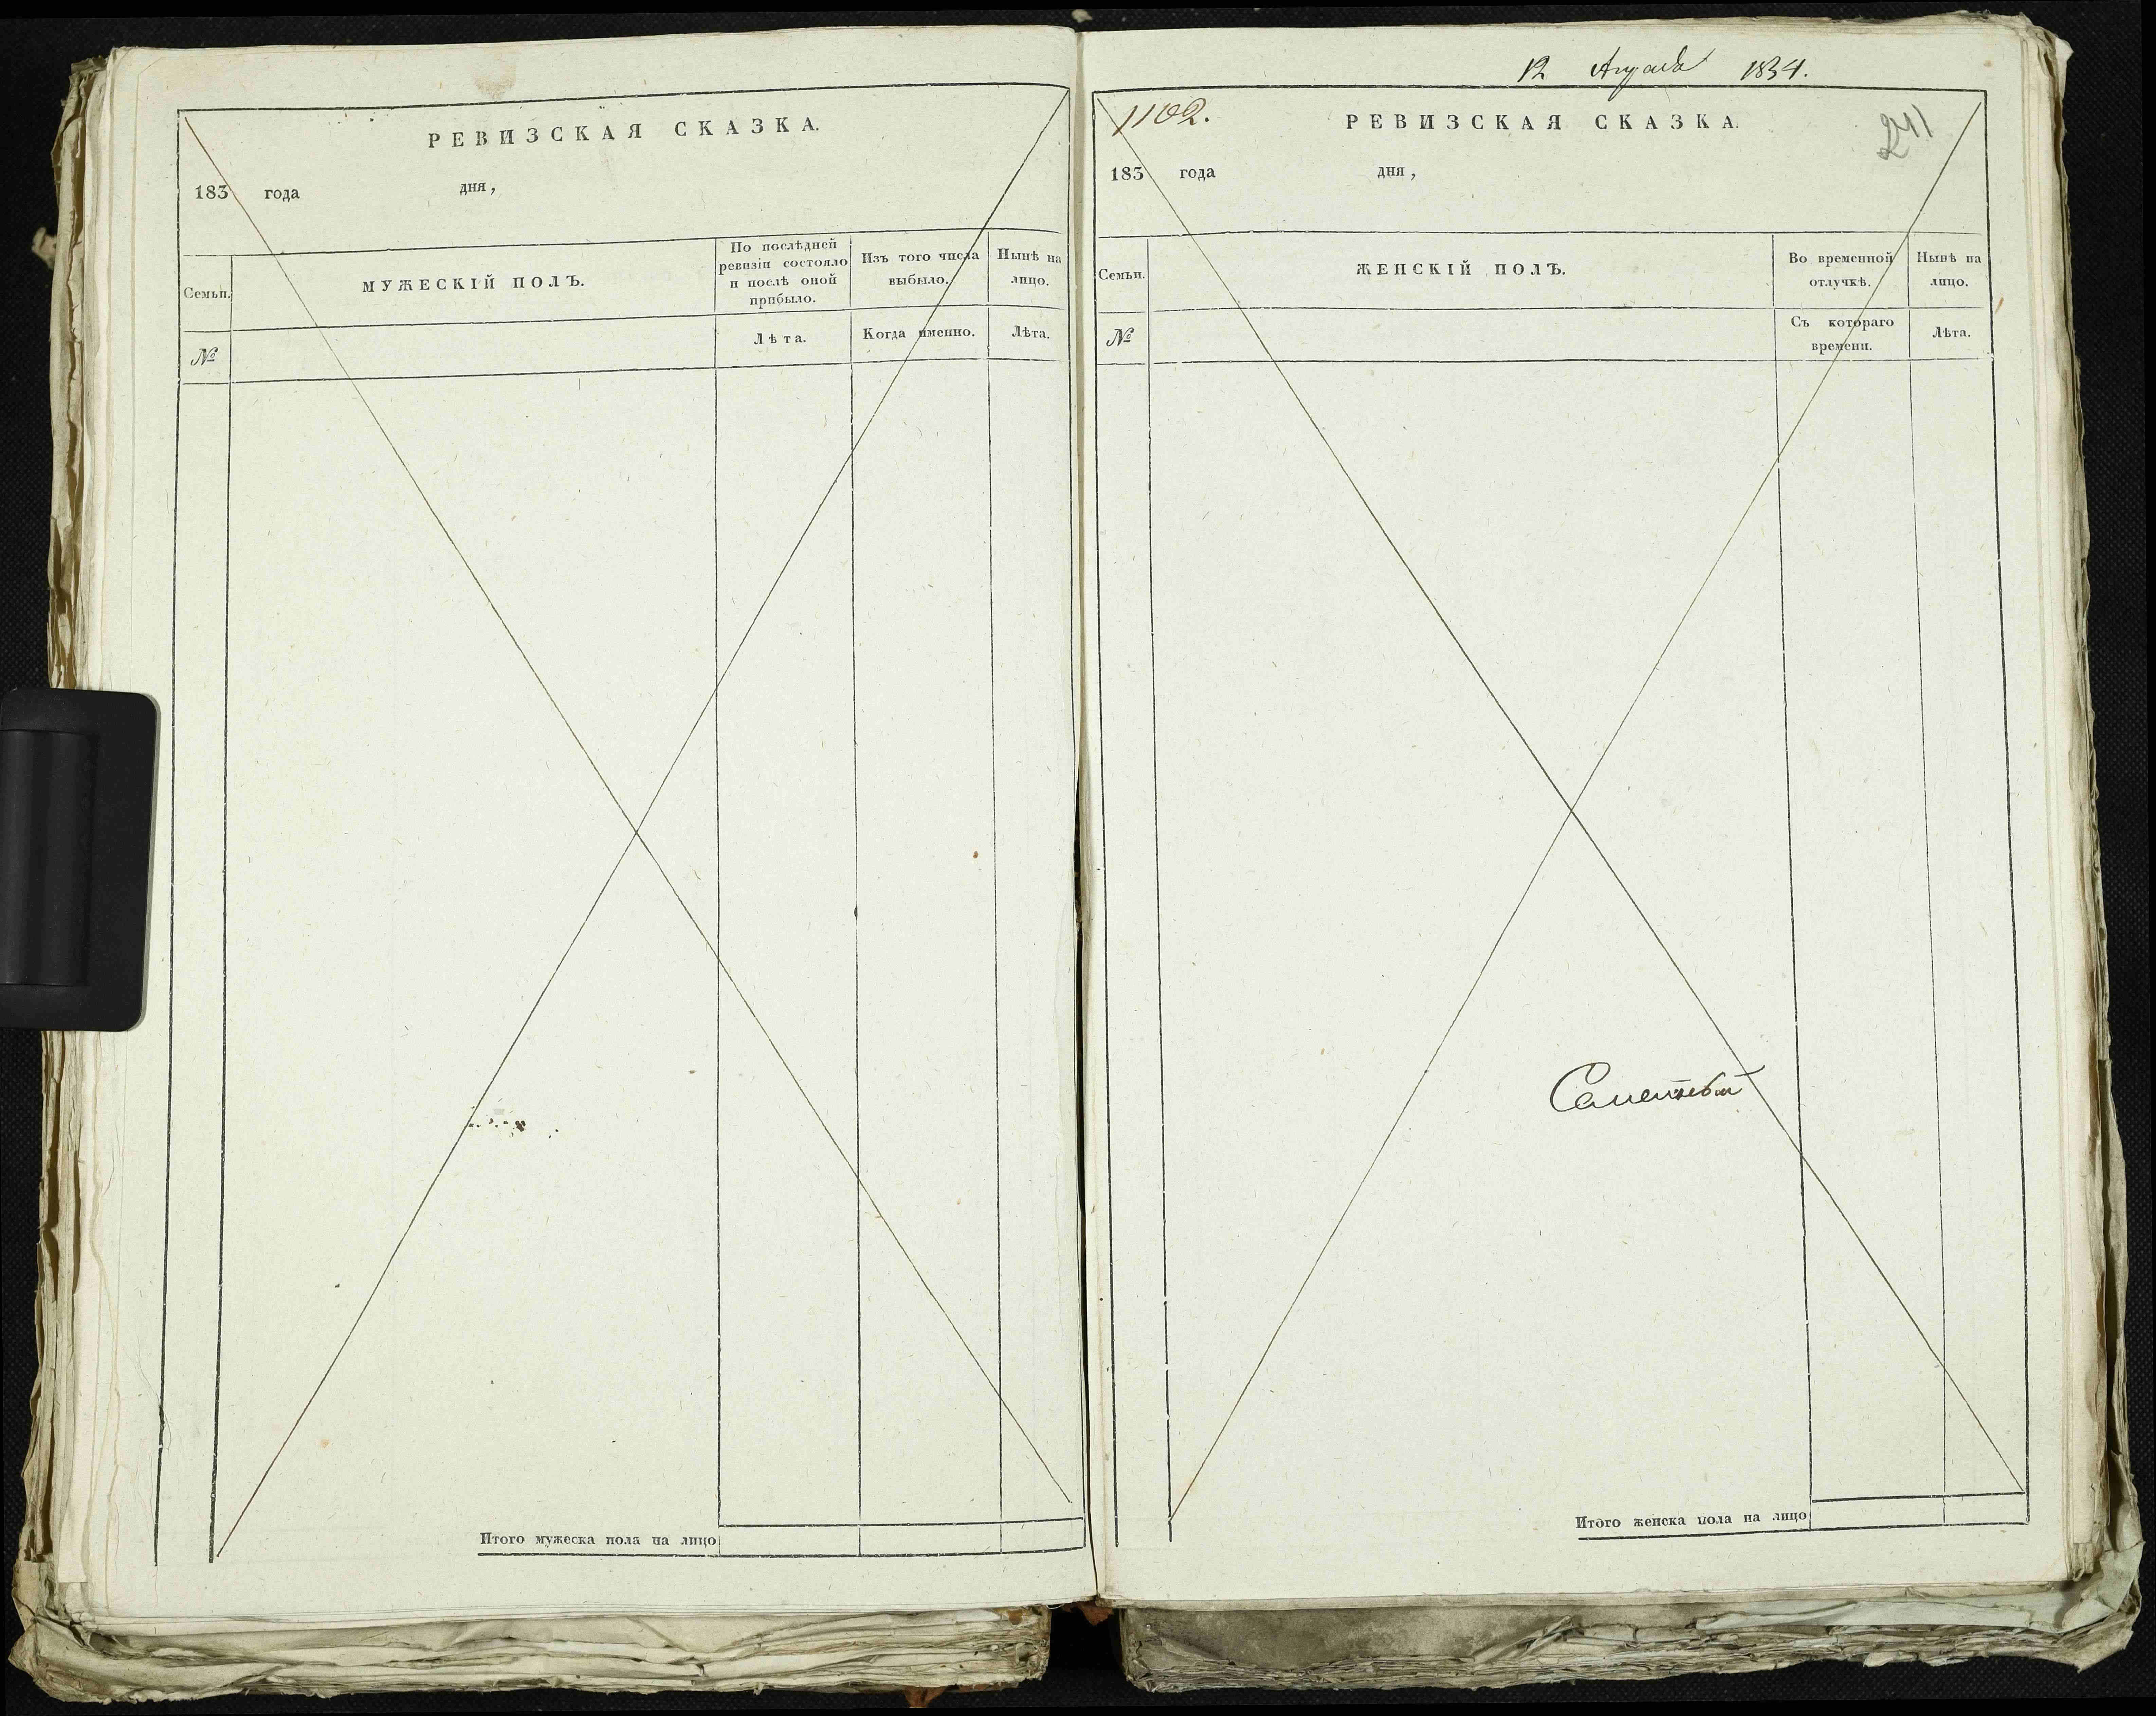 РЕВИЗСКАЯ СКАЗКА.
183 года дня,
Семьи.
МУЖЕСКІЙ ПОЛЪ.
По послѣдней
ревизіи состояло
и послѣ оной
прибыло.
Изъ того числа
выбыло.
Нынѣ на
лицо.
№
Лѣта.
Когда именно.
Лѣта.
Итого мужеска пола на лицо
12 Апреля 1834.
1102.
РЕВИЗСКАЯ СКАЗКА.
241
183 года дня,
Семьи.
ЖЕНСКІЙ ПОЛЪ.
Во временной
отлучкѣ.
Нынѣ на
лицо.
№
Съ котораго
времени.
Лѣта.
Итого женска пола на лицо